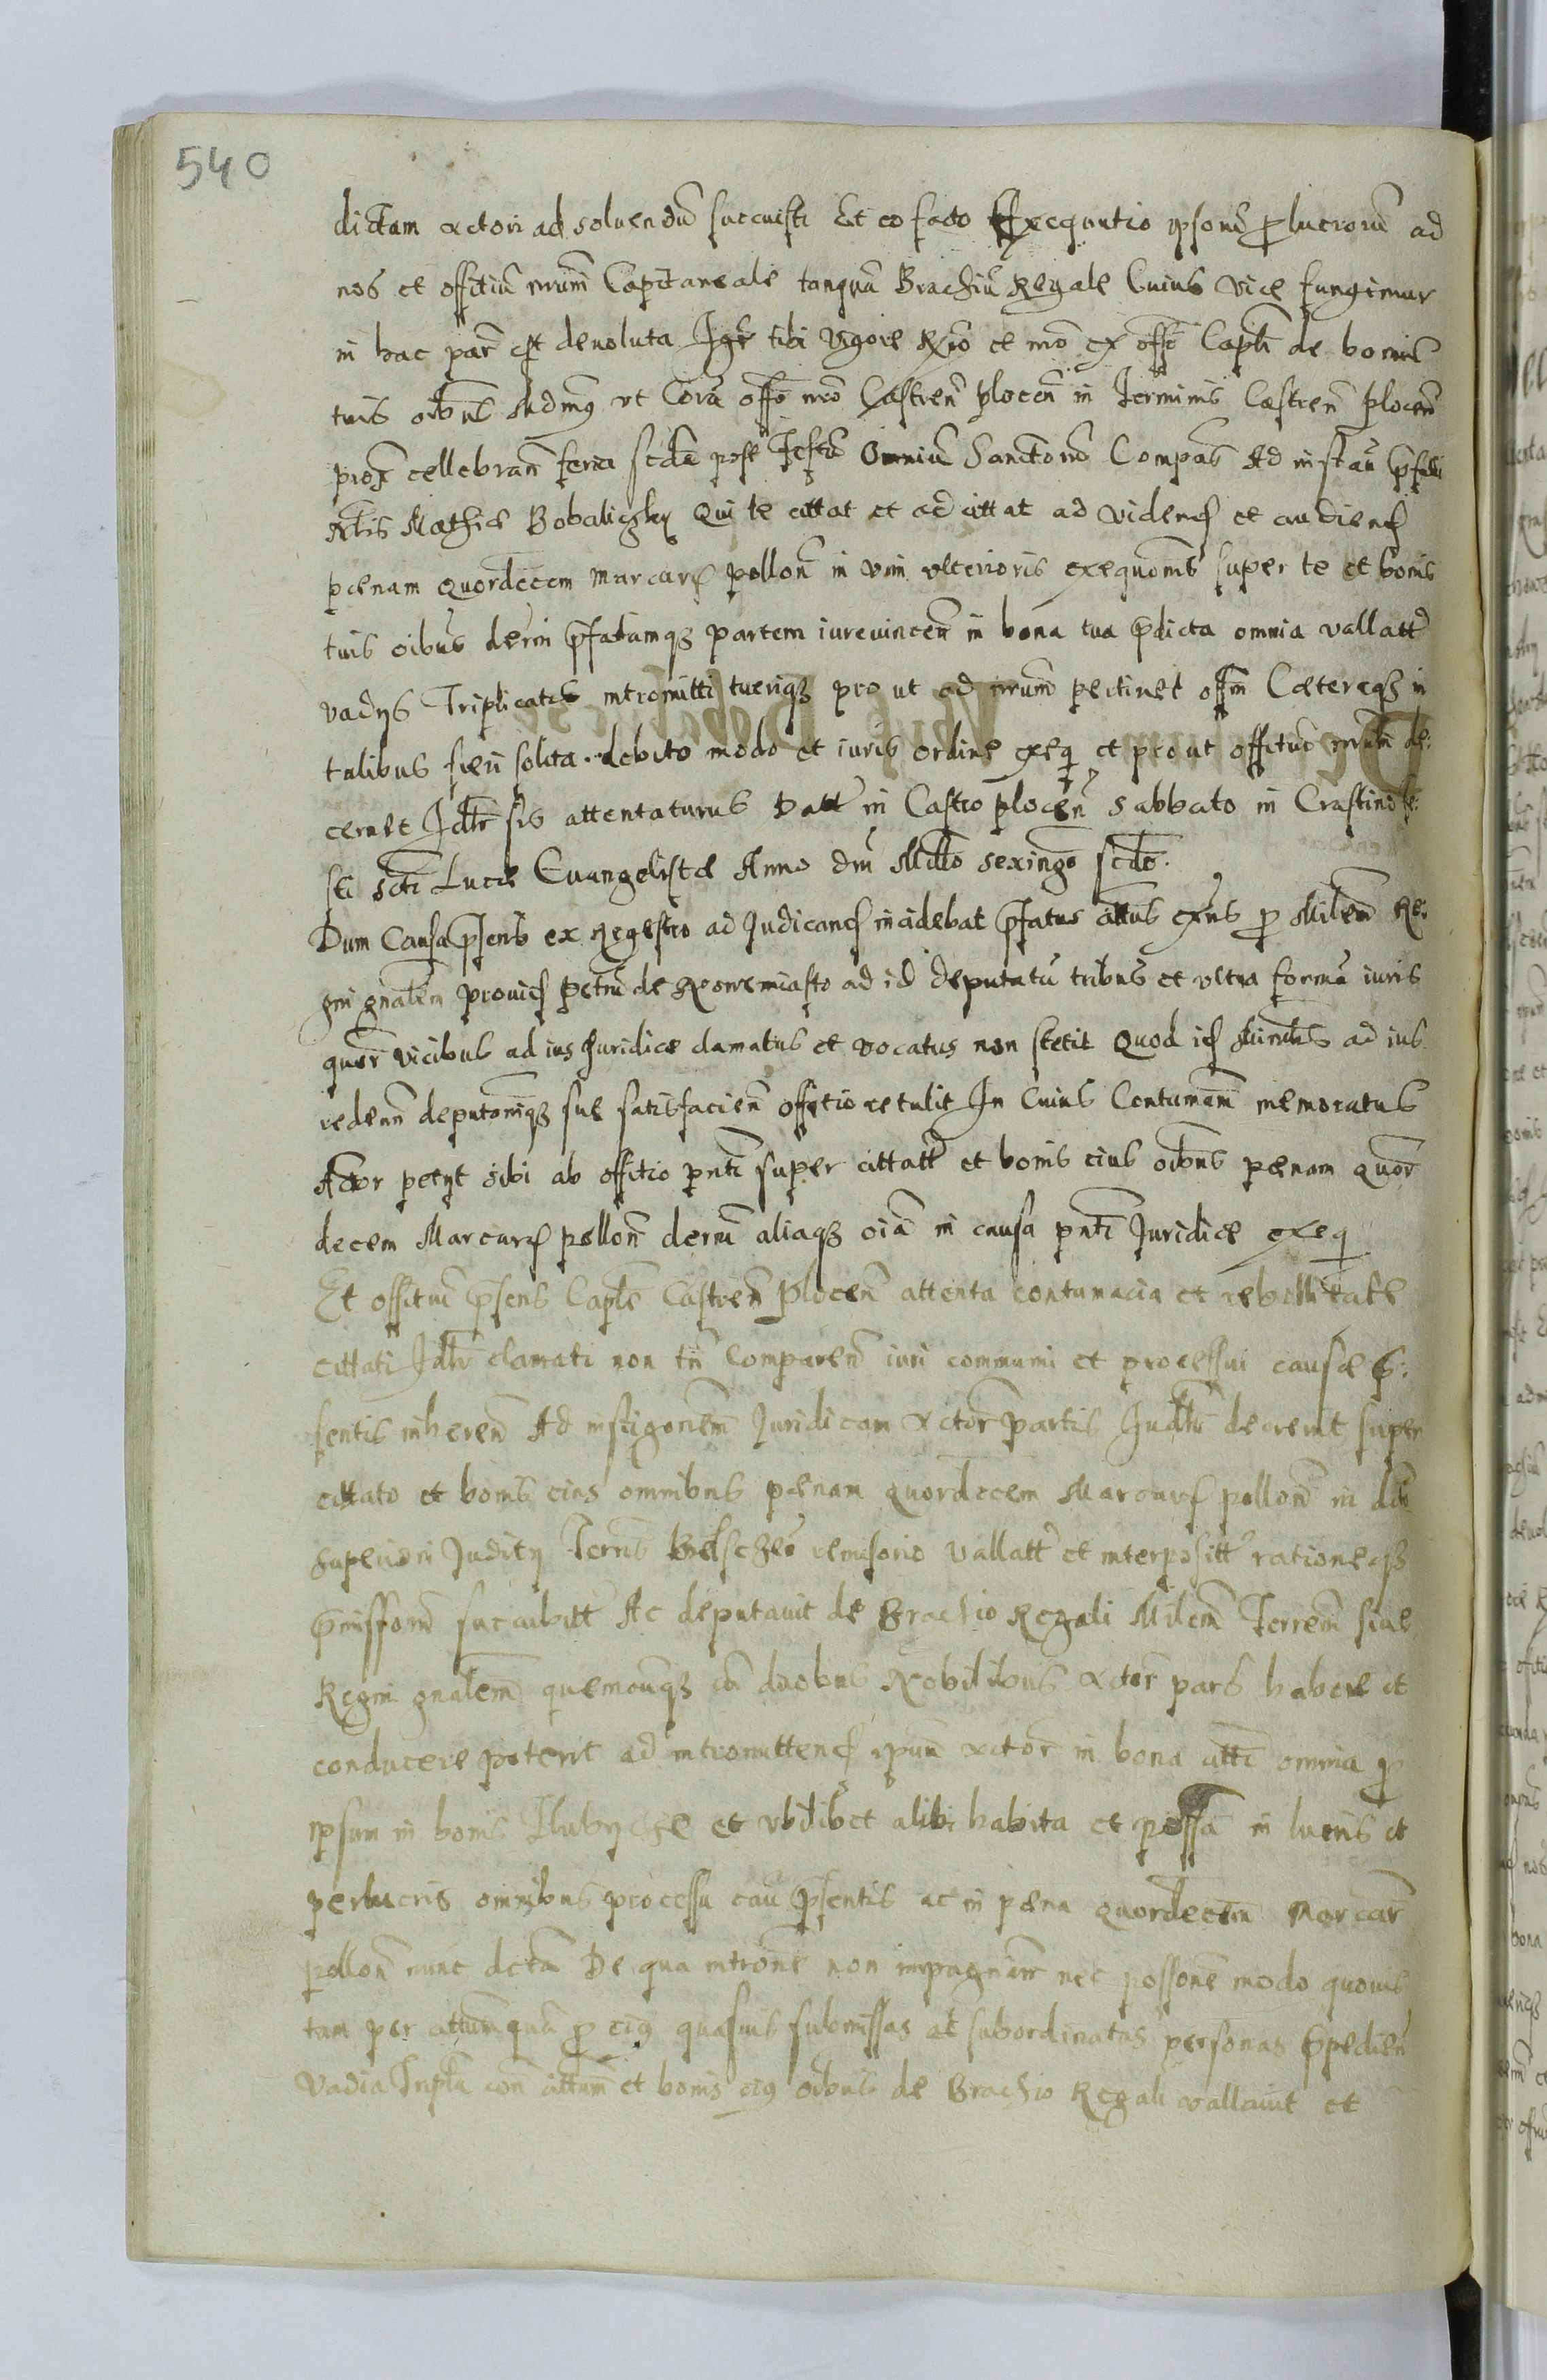 540
dictam actori ad soluendũ succuisti Et eo facto Exequutio ipsorũ plucrorũ ad
nos et offitiũ nrum̃ Capitaneale tanquã Brachiũ Regale Cuius vice fungimur
in hac par̃ est deuoluta Igr̃ tibi vigore Rgio et nro ex offo Capli de bonis
tuis oibus Mdmg vt Corã offo nro Castren̄ plocen̄ in Terminis Castren̄ plocen̄
prox cellebran̄ feria scda post Festũ Omniũ Sanctorũ Compãs Ad instan̄ pfati
Nlis Mathie Bobaliczky Qui te cittat et ad cittat ad videnđ et audienđ
pænam quordecem marcarũ pollon̄ in vim vlterioris exequonis super te et bonis
tuis oibus dcrni pfatamqz partem iureuincen̄ in bona tua pdicta omnia vallatt
vadijs Triplicatis intromitti tueriqz pro ut ad nrum̄ pertinet offm Cætereqz in
talibus fieri solita debito modo et iuris ordine exeq et prout offitiũ nrum̃ de:
cernet Idtr sis attentaturus Datt in Castro plocen̄ Sabbato in Crastino fe:
sti scti Lucæ Euangelistæ Anno dni Millo sexingo scdo.
Dum Causa psens ex Regestro ad Judicanđ incidebat pfatus cittus exns p Milem̄ Re:
gni gnalem̄ prouid petrũ de Nowemiasto ad id deputatũ tribus et vltra formã iuris
quar vicibus ad ius Juridice clamatus et vocatus non stetit Quod id Ministls ad ius
reden̄n deputoniqz suæ satisfacien̄ offitio retulit In Cuius Contumam̄ memoratus
Actor petyt sibi ab offitio pnti super cittatt et bonis eius oibus pænam quor
decem Marcarũ pollon̄ dcrni aliaqz oia in causa pnti Juridice exeq
Et offitiũ psens Caple Castren̄ plocen̄ attenta contumacia et rebellitate
cittati Jdtr clamati non tn̄ Comparen̄ iuri communi et processui causæ p:
sentis inheren̄ Ad instigonem̄ Juridicam Actor̃ partis Judtr decreuit super
cittato et bonis eius omnibus pænam quordecem Marcarũ pollon̄ in
Judity Terris remisorio vallatt et interpositt rationeqz
pmissorũ succubitt Ac deputauit de Brachio Regali Milem̄ Terrem̄ siue
Regni gnalem̄ quemcunqz cũ duobus Nobilibus Actor̃ pars habere et
conducere poterit ad intromittenđ ipum̃ Actor̃ in bona citti omnia p
ipsum in bonis et vbilibet alibi habita et possa in lucris et
perlucris omnibus processu cau psentis ac in pæna quordecem Marcar̃
pollon̄ nunc dcta De qua intrõne non impugnãn nec possone modo quouis
tam per cittum quã p eig quasuis submissas at subordinatas personas Expedien̄
vadia Tripla con cittum et bonis eig oibus de Brachio Regali vallauit et